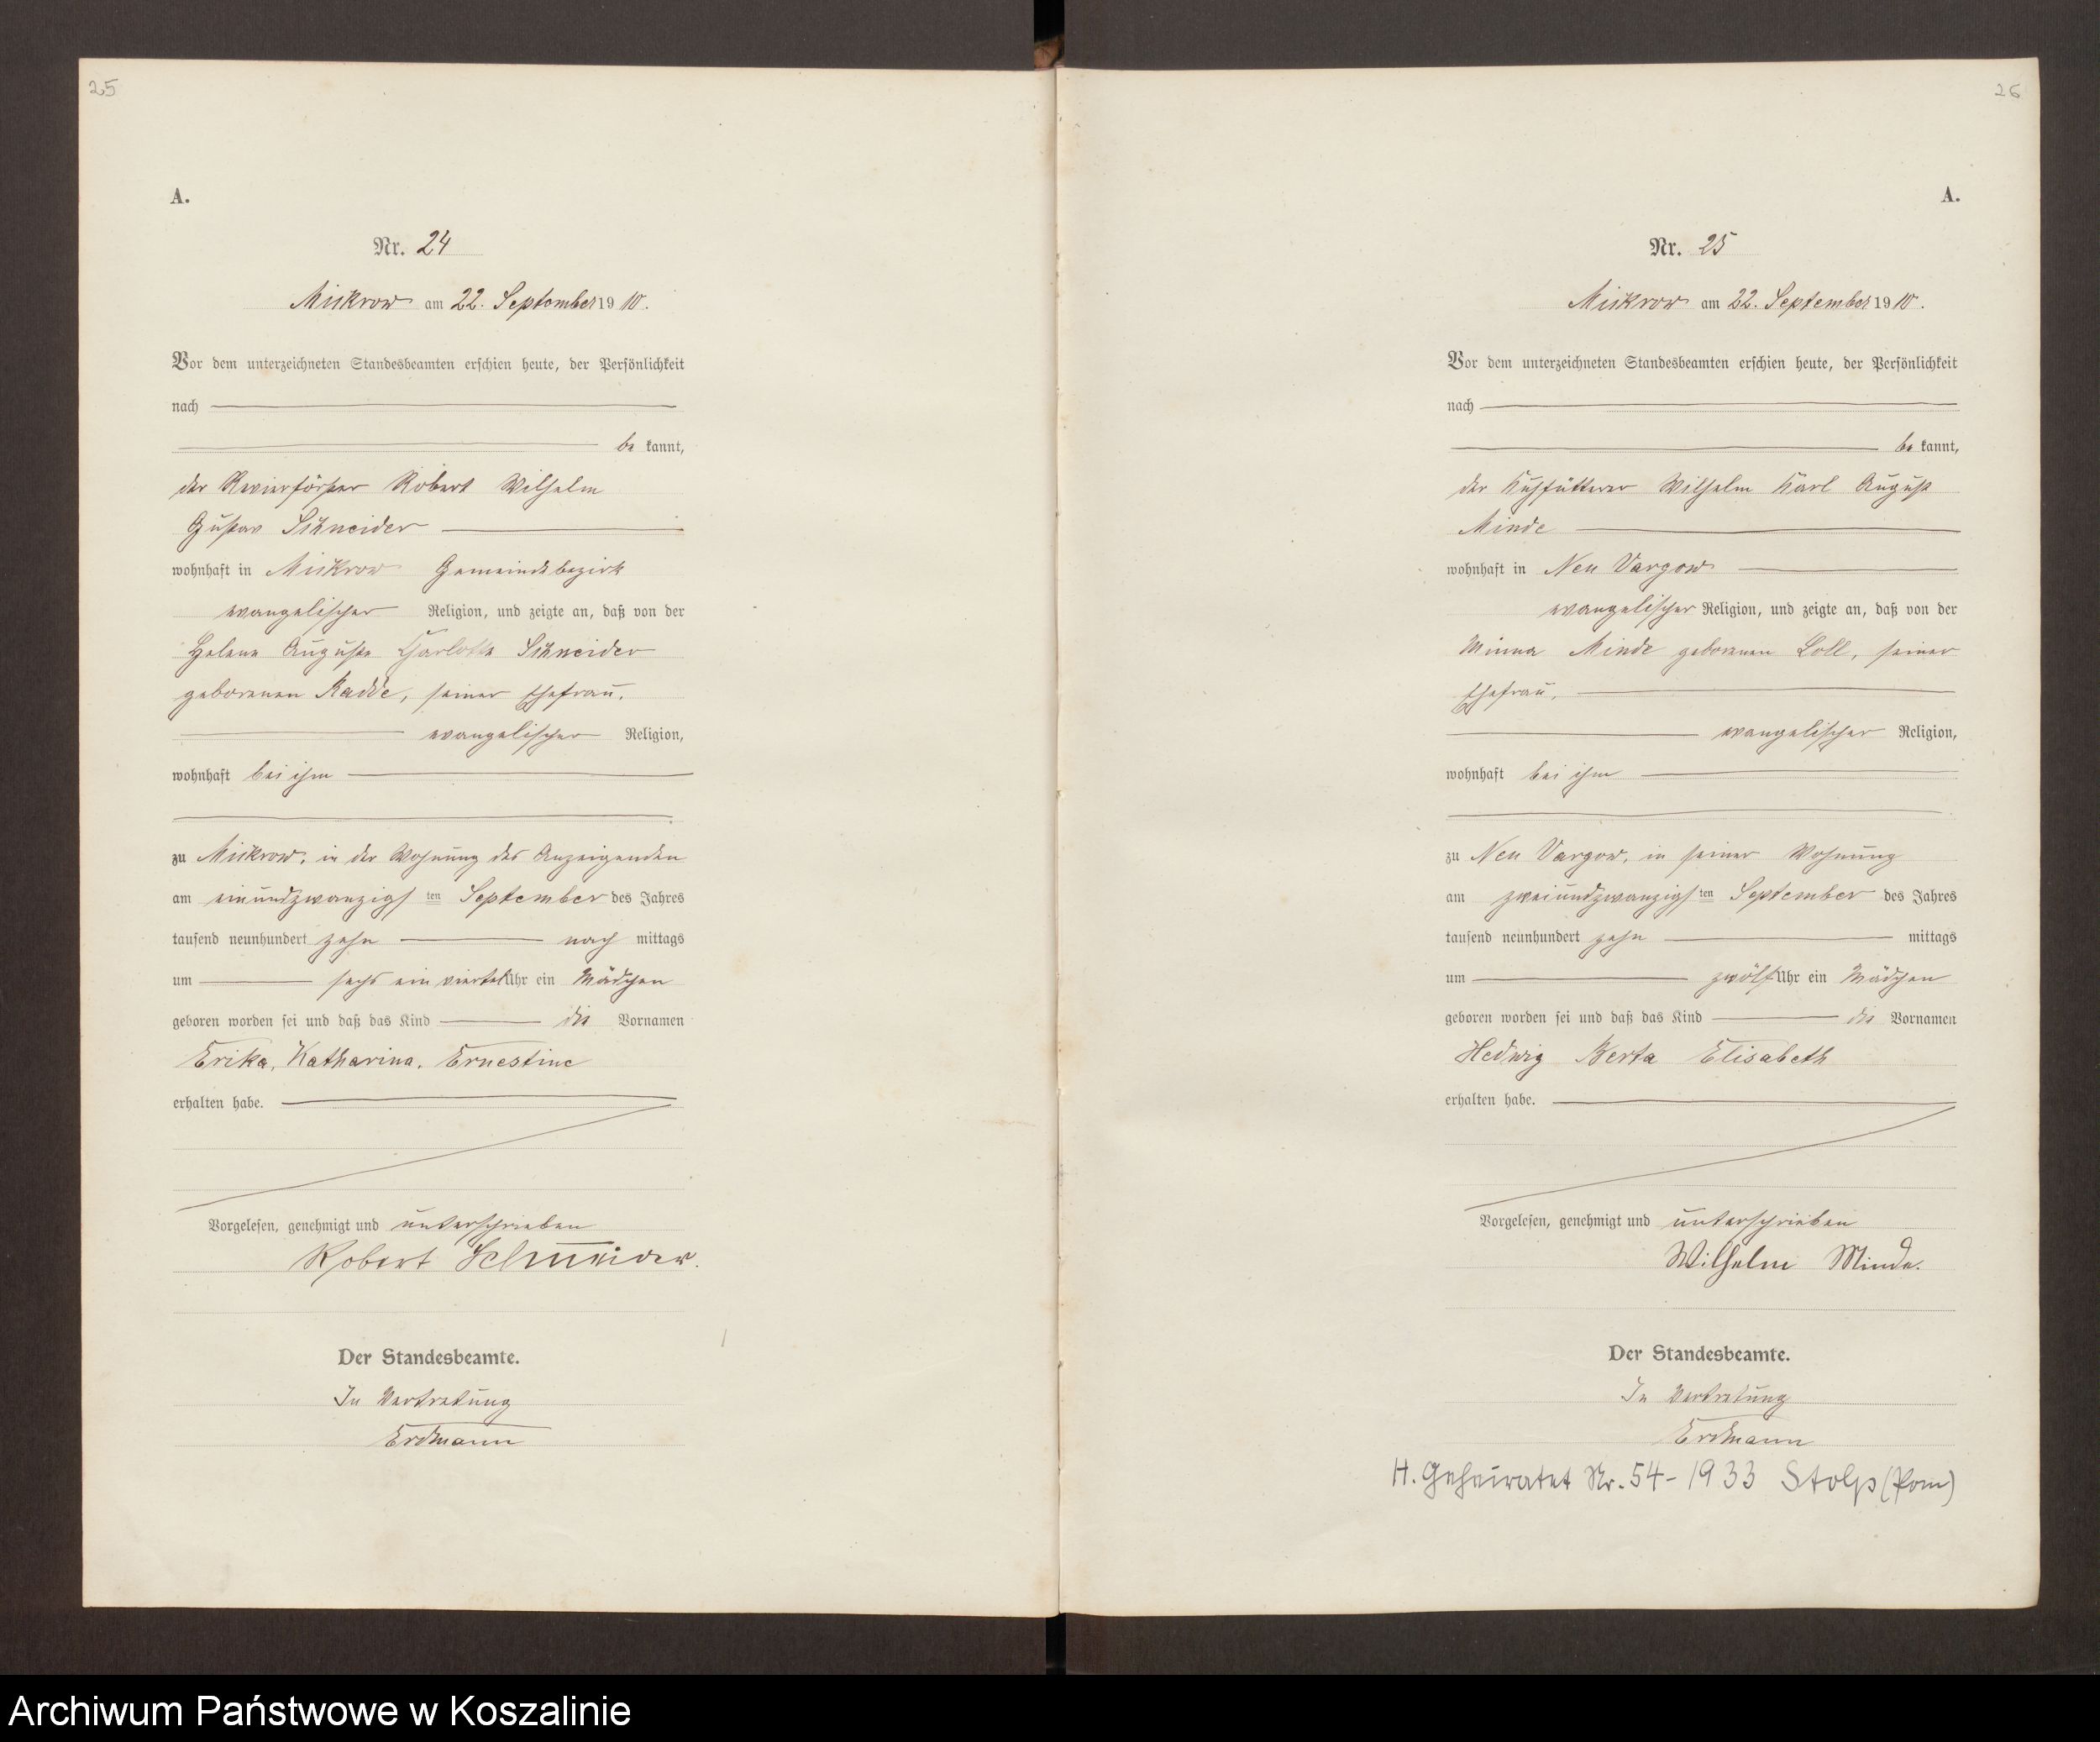 25
A.
Nr. 24
Mikrow am 22. September 1910.
Vor dem unterzeichneten Standesbeamten erschien heute, der Persönlichkeit
nach
be kannt,
der Revierförster Robert Wilhelm
Gustav Schneider
wohnhaft in Mikrow Gemeindebezirk
evangelischer Religion, und zeigte an, daß von der
Helene Auguste Charlotte Schneider
geborenen Radde, seiner Ehefrau,
evangelischer Religion,
wohnhaft bei ihm
zu Mikrow, in der Wohnung des Anzeigenden
am einundzwanzigsten September des Jahres
tausend neunhundert zehn nach mittags
um sechs ein viertel Uhr ein Mädchen
geboren worden sei und daß das Kind die Vornamen
Erika, Katharina, Ernestine
erhalten habe.
Vorgelesen, genehmigt und unterschrieben
Robert Schneider.
Der Standesbeamte.
In Vertretung
Erdmann
26
A.
Nr. 25
Mikrow am 22. September 1910.
Vor dem unterzeichneten Standesbeamten erschien heute, der Persönlichkeit
nach
be kannt,
der Kuhfütterer Wilhelm Karl August
Minde
wohnhaft in Neu Vargow
evangelischer Religion, und zeigte an, daß von der
Minna Minde geborenen Loll, seiner
Ehefrau,
evangelischer Religion,
wohnhaft bei ihm
zu Neu Vargow, in seiner Wohnung
am zweiundzwanzigsten September des Jahres
tausend neunhundert zehn mittags
um zwölf Uhr ein Mädchen
geboren worden sei und daß das Kind die Vornamen
Hedwig Berta Elisabeth
erhalten habe.
Vorgelesen, genehmigt und unterschrieben
Wilhelm Minde.
Der Standesbeamte.
In Vertretung
Erdmann
H. Geheiratet Nr. 54-1933 Stolp (Pom)
Archiwum Państwowe w Koszalinie